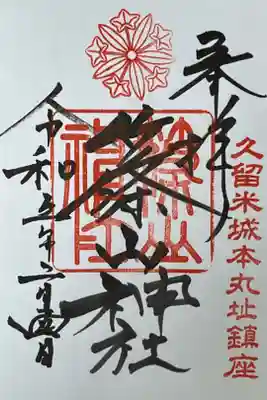 奉拝
久留米城本丸址鎮座
篠山神社
令和五年二月壹日